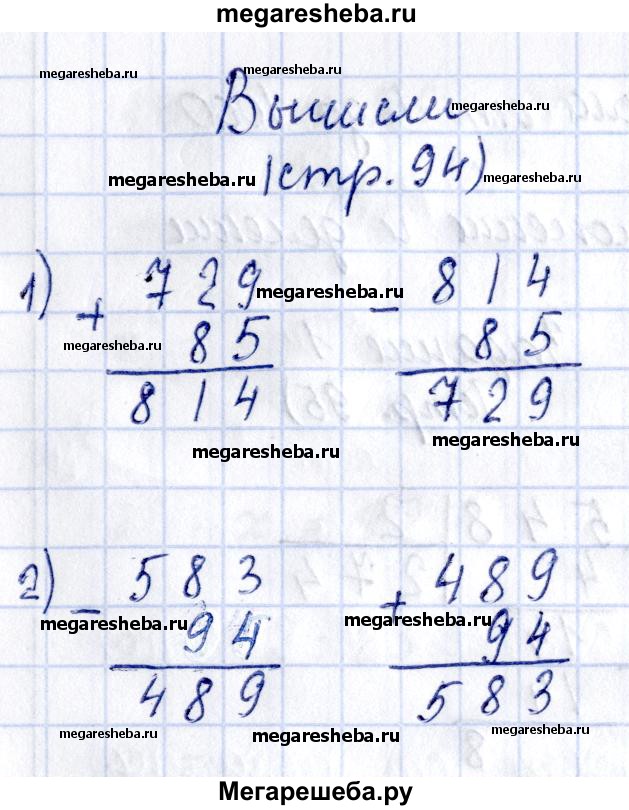 megaresheba.ru
megaresheba.ru megaresheba.ru
Вычисли megaresheba.ru
megaresheba.ru (стр. 94) megaresheba.ru
1) + 729 megaresheba.ru - 814
megaresheba.ru 85 85
814 729
megaresheba.ru megaresheba.ru
2) - 583 + 489
megaresheba.ru 94 megaresheba.ru 94
489 583
megaresheba.ru megaresheba.ru megaresheba.ru
Мегарешеба.ру